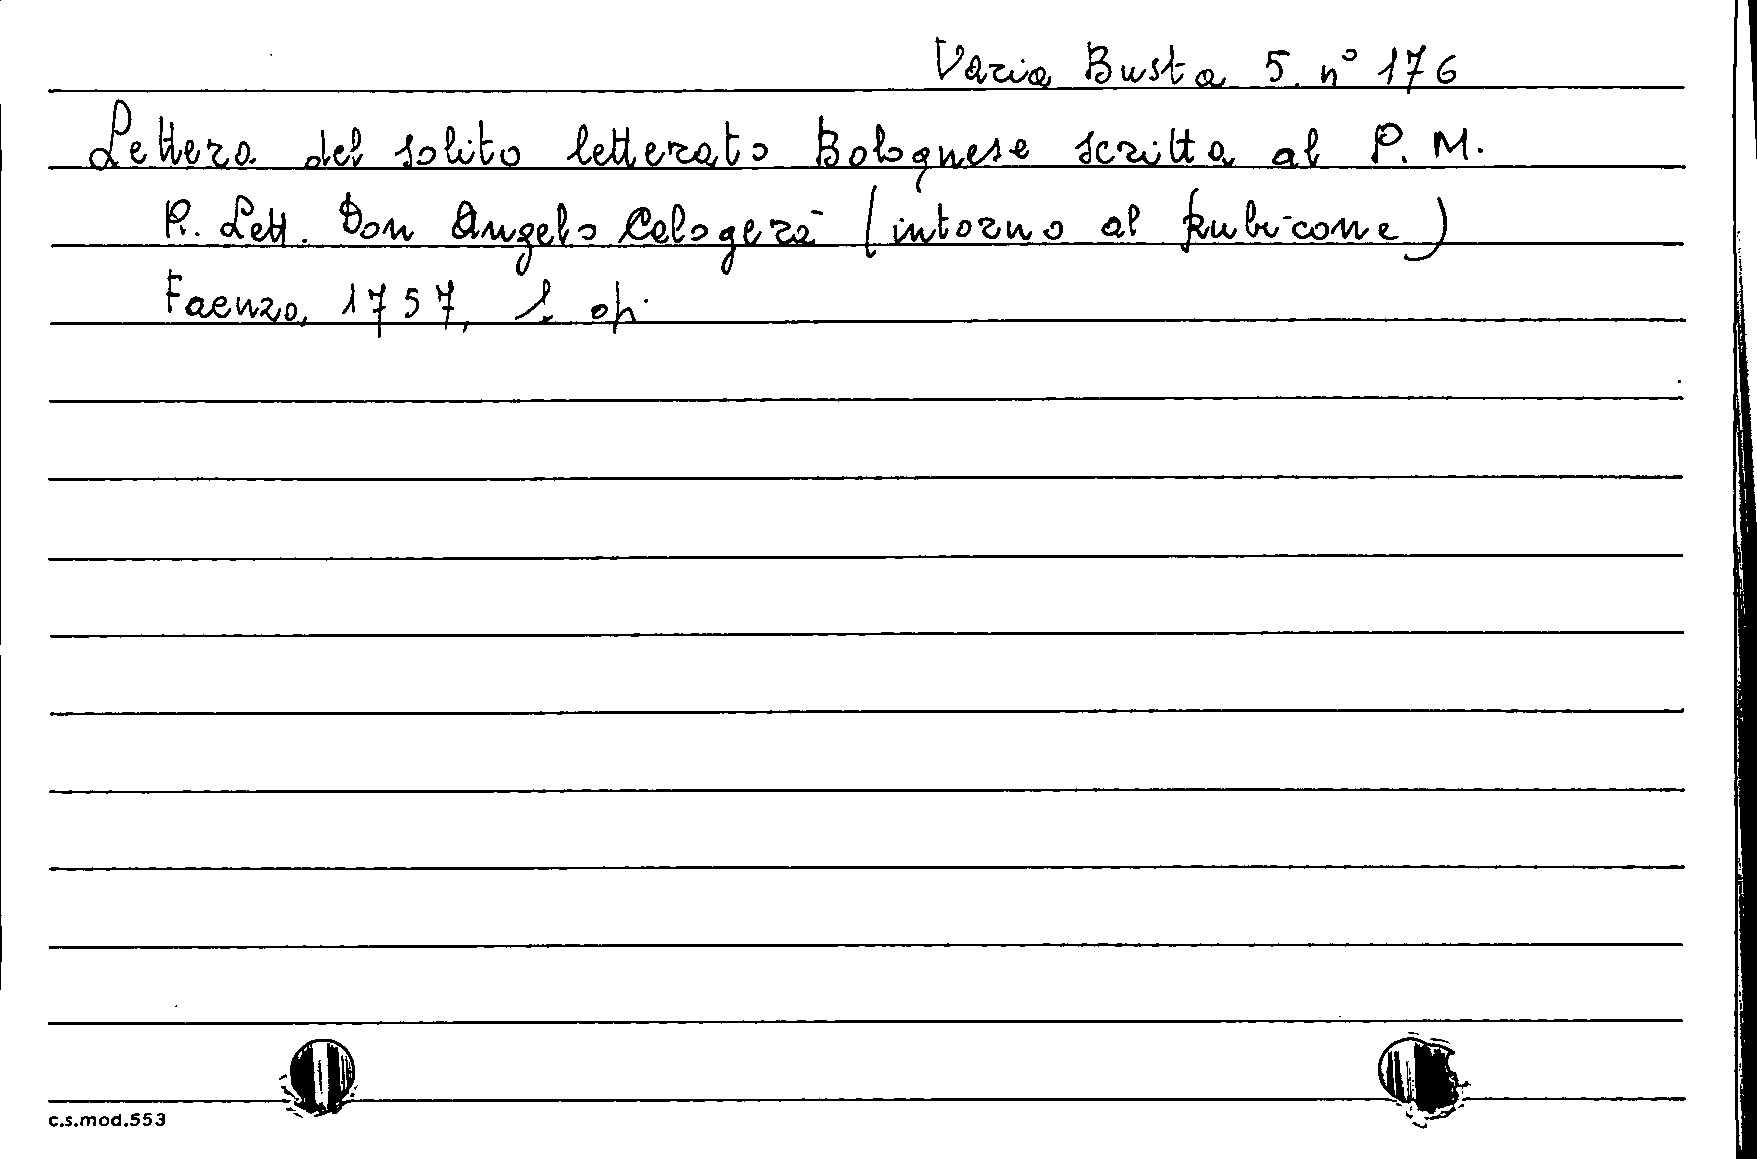 Varia Busta 5. n° 176
Lettera del solito letterato Bolognese scritta al P. M.
R. Lett. Don Angelo Calogerà (intorno al Rubicone)
Faenza, 1757, 1. op.
c.s.mod.553